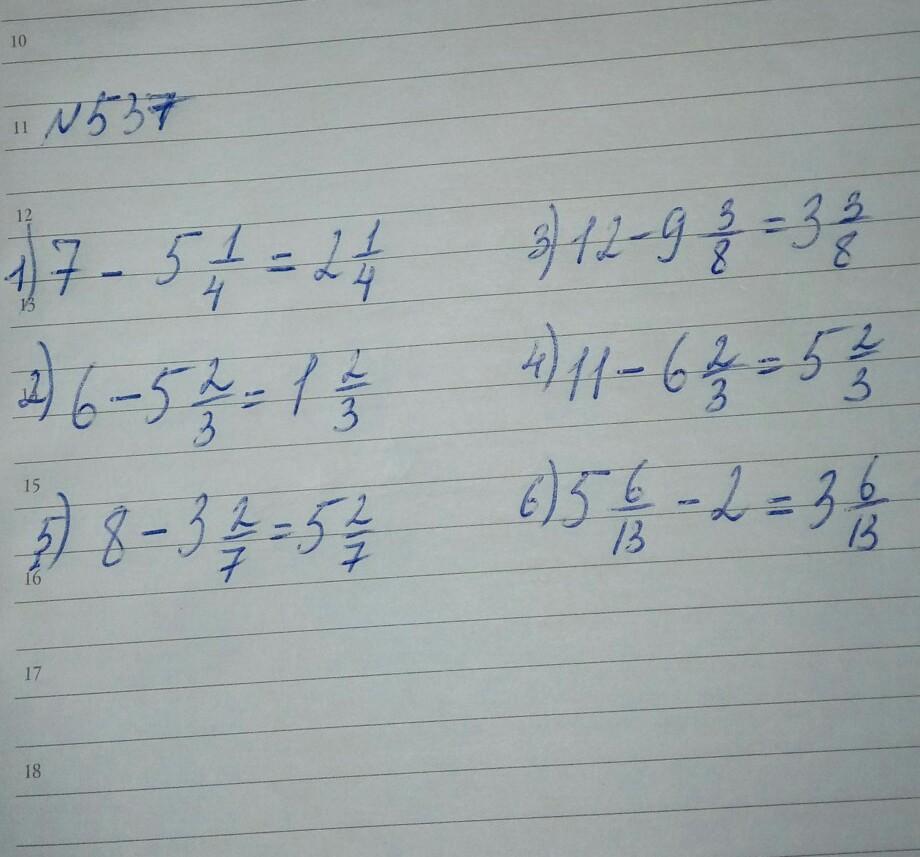 10
11 N537
12
1) 7 - 5 1/4 = 2 1/4
3) 12 - 9 3/8 = 3 3/8
13
2) 6 - 5 2/3 = 1 2/3
4) 11 - 6 2/3 = 5 2/3
15
5) 8 - 3 2/7 = 5 2/7
6) 5 6/13 - 2 = 3 6/13
16
17
18